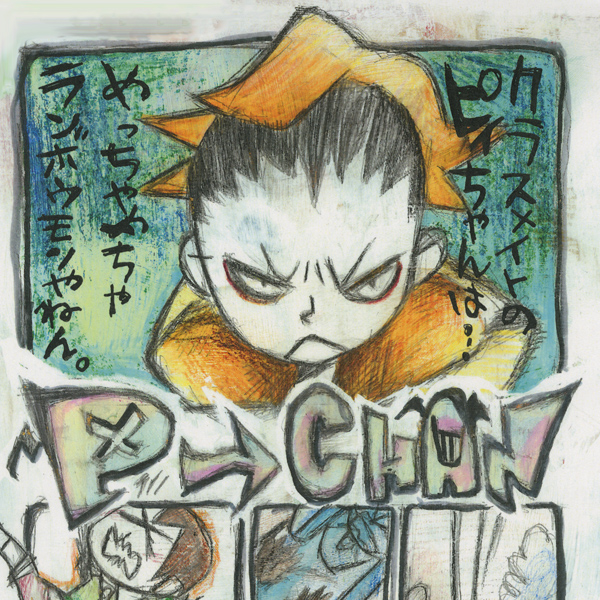 クラスメイトの
ピィちゃんは…
めっちゃめちゃ
ランボウモンやねん。
P→CHAN